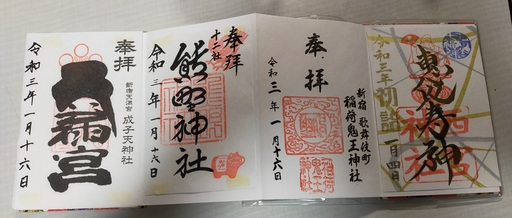 奉拝
新宿天満宮 成子天神社
天満宮
令和三年一月十六日
奉拝
十二社
熊野神社
令和三年一月十六日
奉拝
新宿歌舞伎町
稲荷鬼王神社
令和三年一月十六日
恵比寿神
令和三年 初詣
一月四日